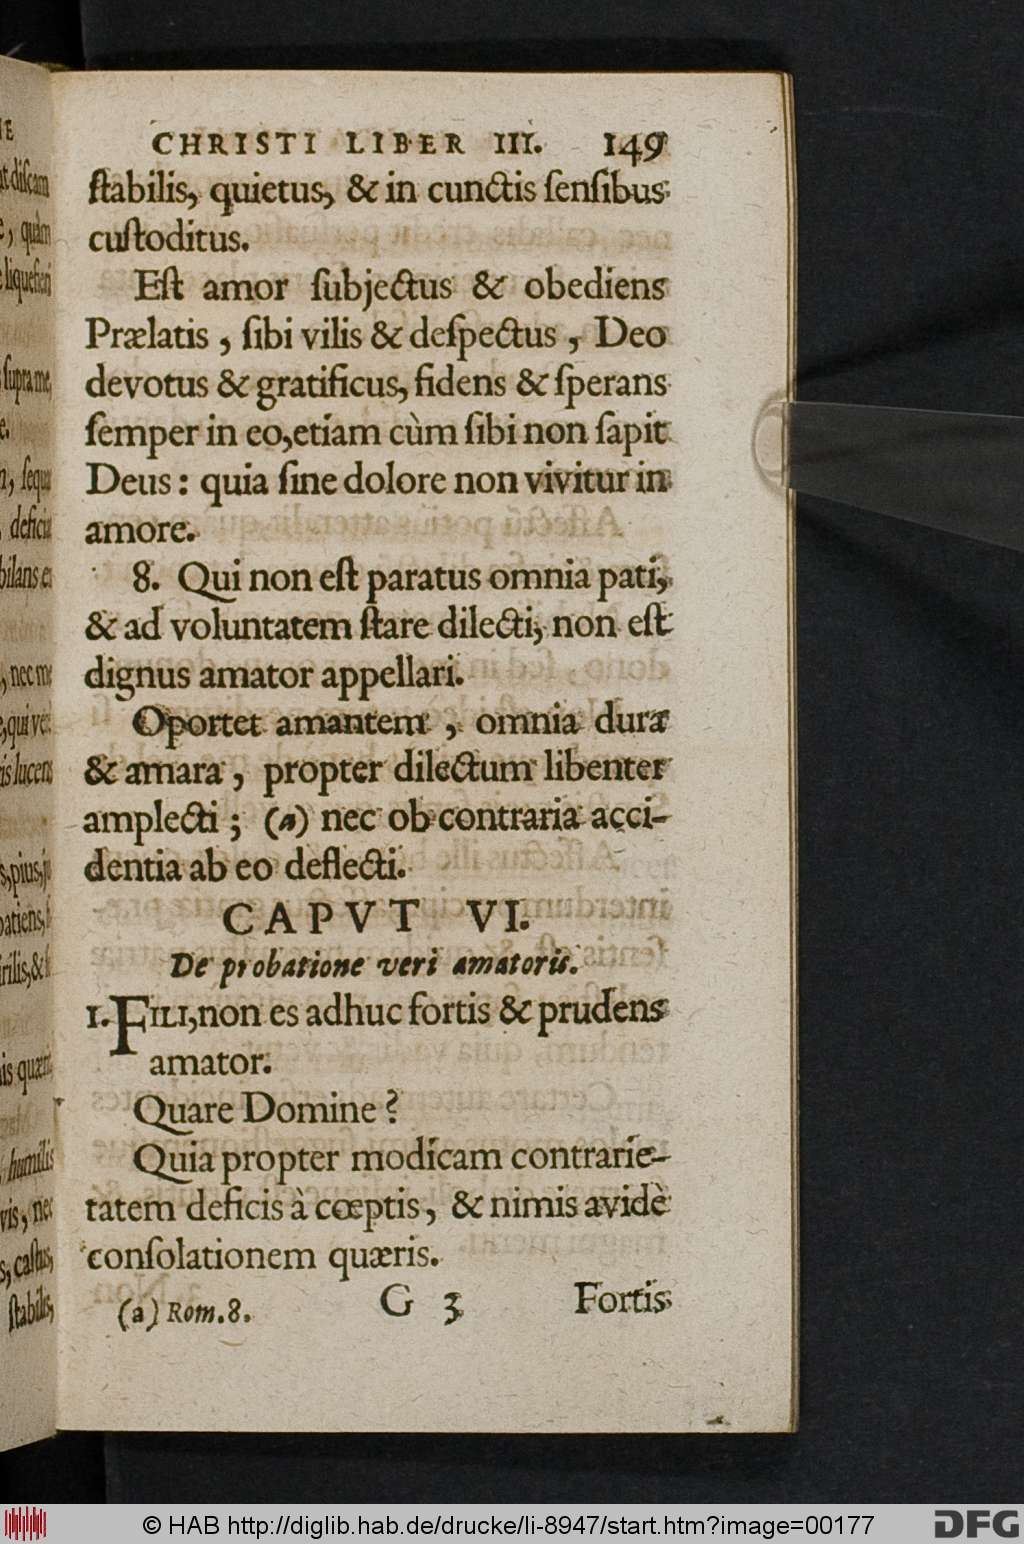 CHRISTI LIBER III. 149
ſtabilis, quietus, & in cunctis ſenſibus
cuſtoditus.
Eſt amor ſubjectus & obediens
Prælatis, ſibi vilis & deſpectus, Deo
devotus & gratificus, fidens & ſperans
ſemper in eo, etiam cùm ſibi non ſapit
Deus: quia ſine dolore non vivitur in
amore.
8. Qui non eſt paratus omnia pati,
& ad voluntatem ſtare dilecti, non eſt
dignus amator appellari.
Oportet amantem, omnia dura
& amara, propter dilectum libenter
amplecti; (a) nec ob contraria acci-
dentia ab eo deflecti.
CAPVT VI.
De probatione veri amatoris.
1. FILI, non es adhuc fortis & prudens
amator.
Quare Domine?
Quia propter modicam contrarie-
tatem deficis à cœptis, & nimis avidè
conſolationem quæris.
(a) Rom. 8. G 3 Fortis
© HAB http://diglib.hab.de/drucke/li-8947/start.htm?image=00177
DFG